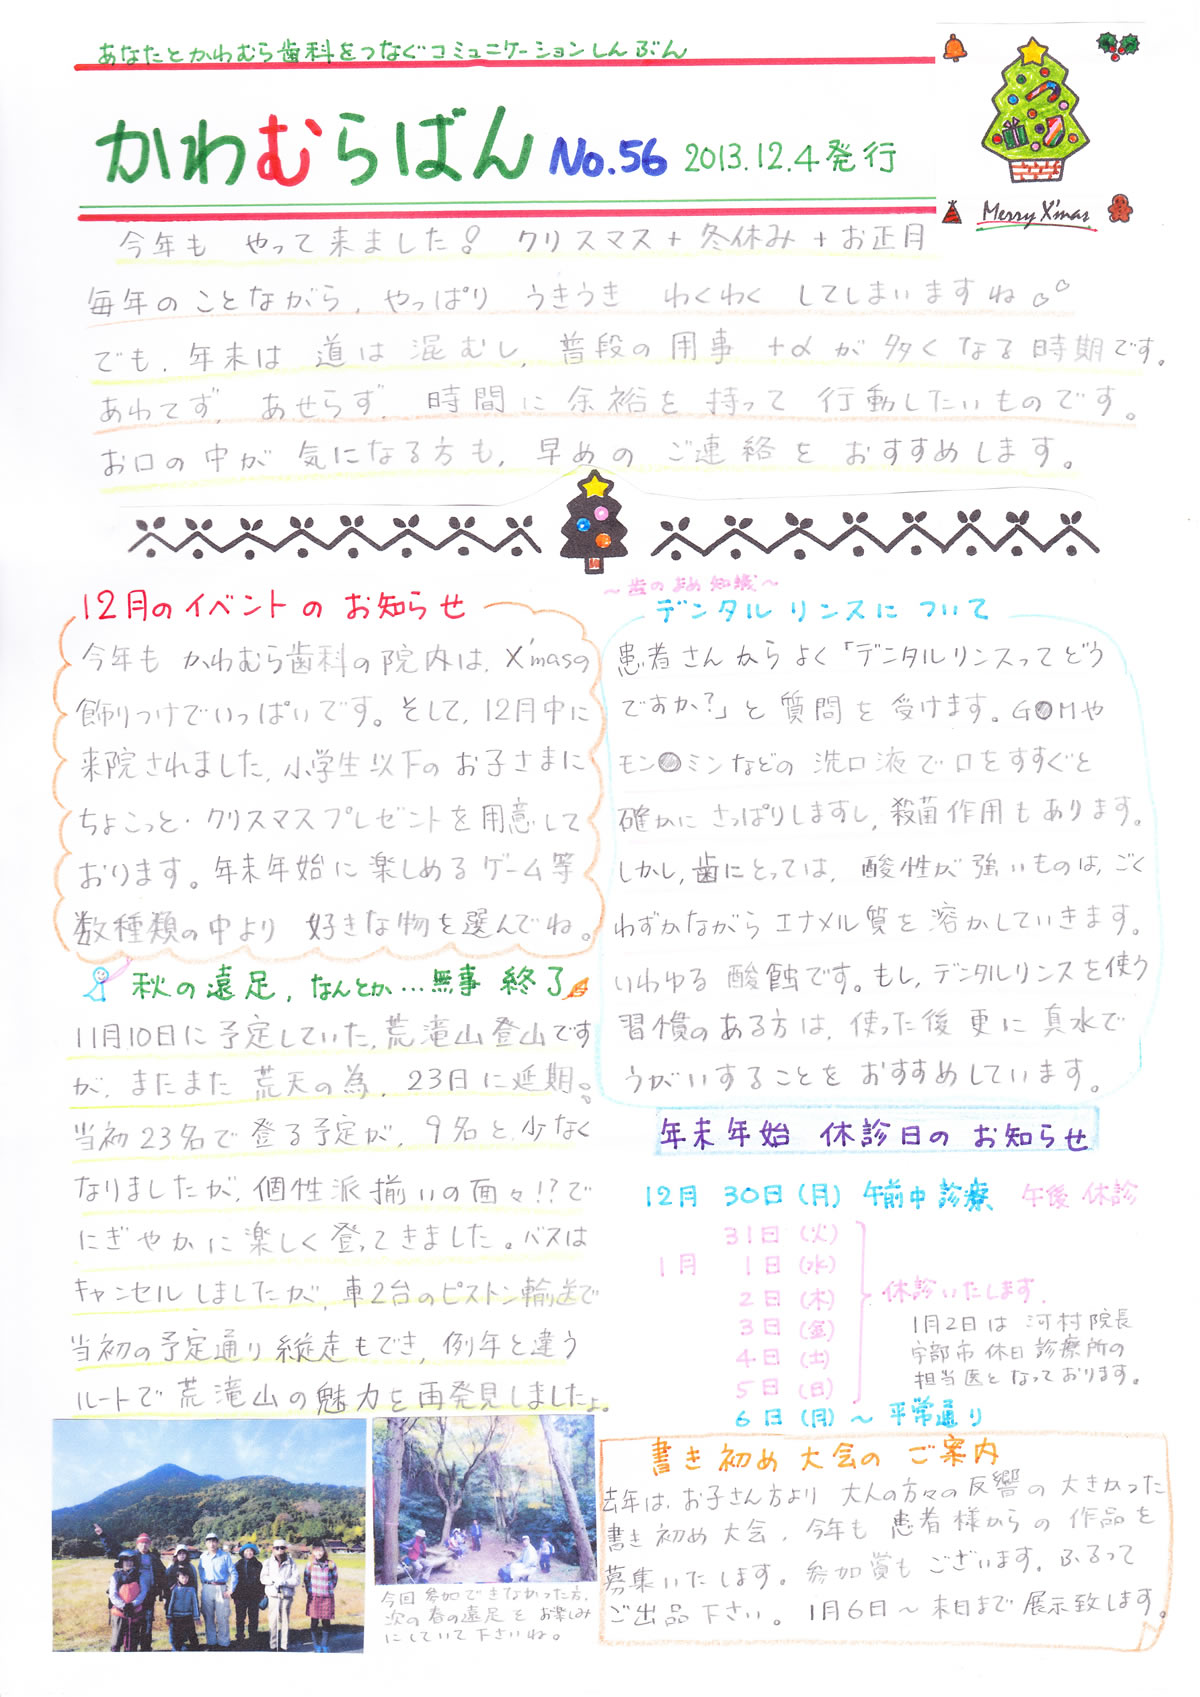 あなたとかわむら歯科をつなぐコミュニケーションしんぶん
かわむらばん No.56 2013.12.4発行
Merry X'mas
今年も やって来ました! クリスマス+冬休み+お正月
毎年のことながら、やっぱり うきうき わくわく してしまいますね。
でも、年末は 道は 混むし、普段の用事 +αが 多くなる時期です。
あわてず、あせらず、時間に余裕を持って 行動したいものです。
お口の中が 気になる方も、早めの ご連絡を おすすめします。
12月のイベントの お知らせ
今年も かわむら歯科の院内は、X'masの
飾りつけでいっぱいです。そして、12月中に
来院されました、小学生以下の お子さまに
ちょこっと・クリスマスプレゼントを用意して
おります。年末年始に楽しめるゲーム等
数種類の中より 好きな物を選んでね。
秋の遠足、なんとか…無事 終了
11月10日に予定していた、荒滝山登山です
が、またまた 荒天の為、23日に延期。
当初23名で登る予定が、9名と少なく
なりましたが、個性派揃いの面々!?で
にぎやかに楽しく登ってきました。バスは
キャンセルしましたが、車2台のピストン輸送で
当初の予定通り縦走もでき、例年と違う
ルートで荒滝山の魅力を再発見しましたよ。
今回参加できなかった方、
次の春の遠足を お楽しみ
にしていて下さいね。
～歯のまめ知識～
デンタルリンスについて
患者さんからよく「デンタルリンスってどう
ですか?」と質問を受けます。G●Mや
モン●ミンなどの 洗口液で口をすすぐと
確かに さっぱりしますし、殺菌作用もあります。
しかし、歯にとっては、酸性が強いものは、ごく
わずかながら エナメル質を溶かしていきます。
いわゆる 酸蝕です。もし、デンタルリンスを使う
習慣のある方は、使った後更に真水で
うがいすることを おすすめしています。
年末年始 休診日の お知らせ
12月 30日(月) 午前中診療 午後休診
31日(火)
1月 1日(水)
2日(木)
3日(金)
4日(土)
5日(日)
休診いたします。
1月2日は 河村院長
宇部市休日診療所の
担当医となっております。
6日(月)～平常通り
書き初め大会の ご案内
去年は、お子さん方より 大人の方々の反響の大きかった
書き初め大会、今年も 患者様からの 作品を
募集いたします。参加賞も ございます。ふるって
ご出品下さい。1月6日～末日まで 展示致します。